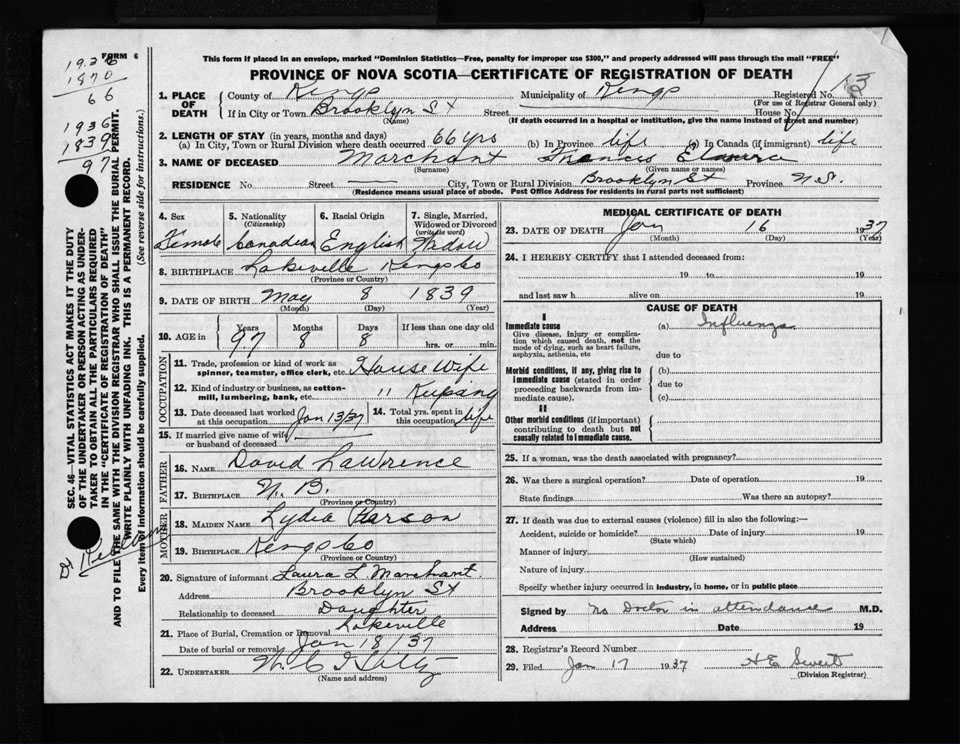 FORM 6
19.36
1870
66
1936
1839
97
This form if placed in an envelope, marked "Dominion Statistics—Free, penalty for improper use $300," and properly addressed will pass through the mail "FREE"
PROVINCE OF NOVA SCOTIA—CERTIFICATE OF REGISTRATION OF DEATH
13
1. PLACE OF DEATH
County of Kings Municipality of Kings Registered No.
(For use of Registrar General only)
If in City or Town Brooklyn St Street House No.
(Name) (If death occurred in a hospital or institution, give the name instead of street and number)
2. LENGTH OF STAY (in years, months and days)
(a) In City, Town or Rural Division where death occurred 66 yrs (b) In Province life (c) In Canada (if immigrant) life
3. NAME OF DECEASED Marchant Frances
(Surname) (Given name or names)
RESIDENCE No. Street City, Town or Rural Division Brooklyn St Province N.S.
(Residence means usual place of abode. Post Office Address for residents in rural parts not sufficient)
4. Sex 5. Nationality (Citizenship) 6. Racial Origin 7. Single, Married, Widowed or Divorced (write the word)
Female Canadian English Widow
8. BIRTHPLACE Lakeville Kings Co
(Province or Country)
9. DATE OF BIRTH May 8 1839
(Month) (Day) (Year)
10. AGE in Years Months Days If less than one day old
97 8 8 hrs. or min.
OCCUPATION
11. Trade, profession or kind of work as spinner, teamster, office clerk, etc. House Wife
12. Kind of industry or business, as cotton-mill, lumbering, bank, etc. " Keeping
13. Date deceased last worked at this occupation Jan 13/37 14. Total yrs. spent in this occupation life
15. If married give name of wife or husband of deceased
FATHER
16. NAME David Lawrence
17. BIRTHPLACE N. B.
(Province or Country)
MOTHER
18. MAIDEN NAME Lydia
19. BIRTHPLACE Kings Co
(Province or Country)
20. Signature of informant Laura L Marchant
Address Brooklyn St
Relationship to deceased Daughter
21. Place of Burial, Cremation or Removal Lakeville
Date of burial or removal Jan 18/37
22. UNDERTAKER
(Name and address)
MEDICAL CERTIFICATE OF DEATH
23. DATE OF DEATH Jan 16 1937
(Month) (Day) (Year)
24. I HEREBY CERTIFY that I attended deceased from:
19 to 19
and last saw h alive on 19
CAUSE OF DEATH
I
Immediate cause (a) Influenza
Give disease, injury or complication which caused death, not the mode of dying, such as heart failure, asphyxia, asthenia, etc due to
Morbid conditions, if any, giving rise to immediate cause (stated in order proceeding backwards from immediate cause). (b)
due to
(c)
II
Other morbid conditions (if important) contributing to death but not causally related to immediate cause.
25. If a woman, was the death associated with pregnancy?
26. Was there a surgical operation? Date of operation 19
State findings Was there an autopsy?
27. If death was due to external causes (violence) fill in also the following:—
Accident, suicide or homicide? Date of injury 19
(State which)
Manner of injury
(How sustained)
Nature of injury
Specify whether injury occurred in industry, in home, or in public place
Signed by No Doctor in attendance M.D.
Address Date 19
28. Registrar's Record Number
29. Filed Jan 17 1937 H E Sweet
(Division Registrar)
SEC. 46—VITAL STATISTICS ACT MAKES IT THE DUTY
OF THE UNDERTAKER OR PERSON ACTING AS UNDERTAKER TO OBTAIN ALL THE PARTICULARS REQUIRED
IN THE "CERTIFICATE OF REGISTRATION OF DEATH"
AND TO FILE THE SAME WITH THE DIVISION REGISTRAR WHO SHALL ISSUE THE BURIAL PERMIT.
WRITE PLAINLY WITH UNFADING INK. THIS IS A PERMANENT RECORD.
Every item of information should be carefully supplied. (See reverse side for instructions.)